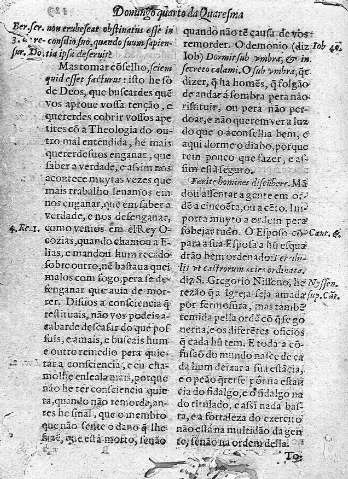 Domingo quarto da Quaresma
Ber. ser. non erubescat obstinatus esse in
3. consilio suo, quando suum sapien-
sur. Do tia ipsa deseruit
Mas tomar cõselho, sciem
quid esset facturus: isto he só
de Deos, que buscardes quẽ
vos aprove vossa tenção, e
quererdes cobrir vossos ape
tites cõ a Theologia do ou-
tro mal entendida, he mais
quererdes vos enganar, que
saber a verdade, e assim nos
acontece muytas vezes que
mais trabalho senamos em
nos enganar, que em saber a
verdade, e nos desenganar,
4. Re. 1. como vemos em el Rey O-
cozias, quando chamou a E-
lias, e mandou hum recado
sobre outro, nẽ bastava quei
malos com fogo, pera se de-
senganar que avia de mor-
rer. Disvos a consciencia q̃
restituais, não vos podeis a-
cabar de descasar do que pos-
suis, e amais, e buscais hum
e outro remedio pera quie-
tar a consciencia, e eu cha-
mo lhe enlealarvos, porque
não he ter consciencia quie-
ta, quando não remorde, an-
tes he sinal, que o membro
que não sente o dano q̃ lhe
fazẽ, que está morto, senão
quando não tẽ causa de vos
remorder. O demonio (diz Iob 40.
Iob) Dormit sub umbra, & in
secreto calami, O sub umbra, q̃r
dizer, q̃ ha homẽs, q̃ folgão
de andar á sombra pera não
restituir, ou pera não per-
doar, e não querem ver a luz
do que o aconselha bem, e
aqui dorme o diabo, porque
tem pouco que fazer, e as-
sim está seguro.
Facite homines discubere. Mã
dou assentar a gente em or-
dẽ a cincoẽta, ou a cẽto. Im
porta muyto a ordem pera
sobejar tudo. O Esposo cõ Cant. 6.
para a sua Esposa a hũ esqua
drão bem ordenado:
ut castrorum acies ordinata.
diz S. Gregorio Nisseno, he Nyssen.
rezão q̃ a Igreja seja amada sup. Cãt.
por fermosura, mas tambẽ
temida pela ordẽ cõ q̃ se go
verna, e os diferẽtes oficios
q̃ cada hũ tem. E toda a cõ
fusão do mundo nasce de ca
da hum deixar a sua estãcia,
e o peão q̃rer se põr na estãn
cia do fidalgo, e o fidalgo na
do titulado, e assi nada bas-
ta, e a fortaleza do exercito
não está na multidão da gen
te, senão na ordem della.
To-